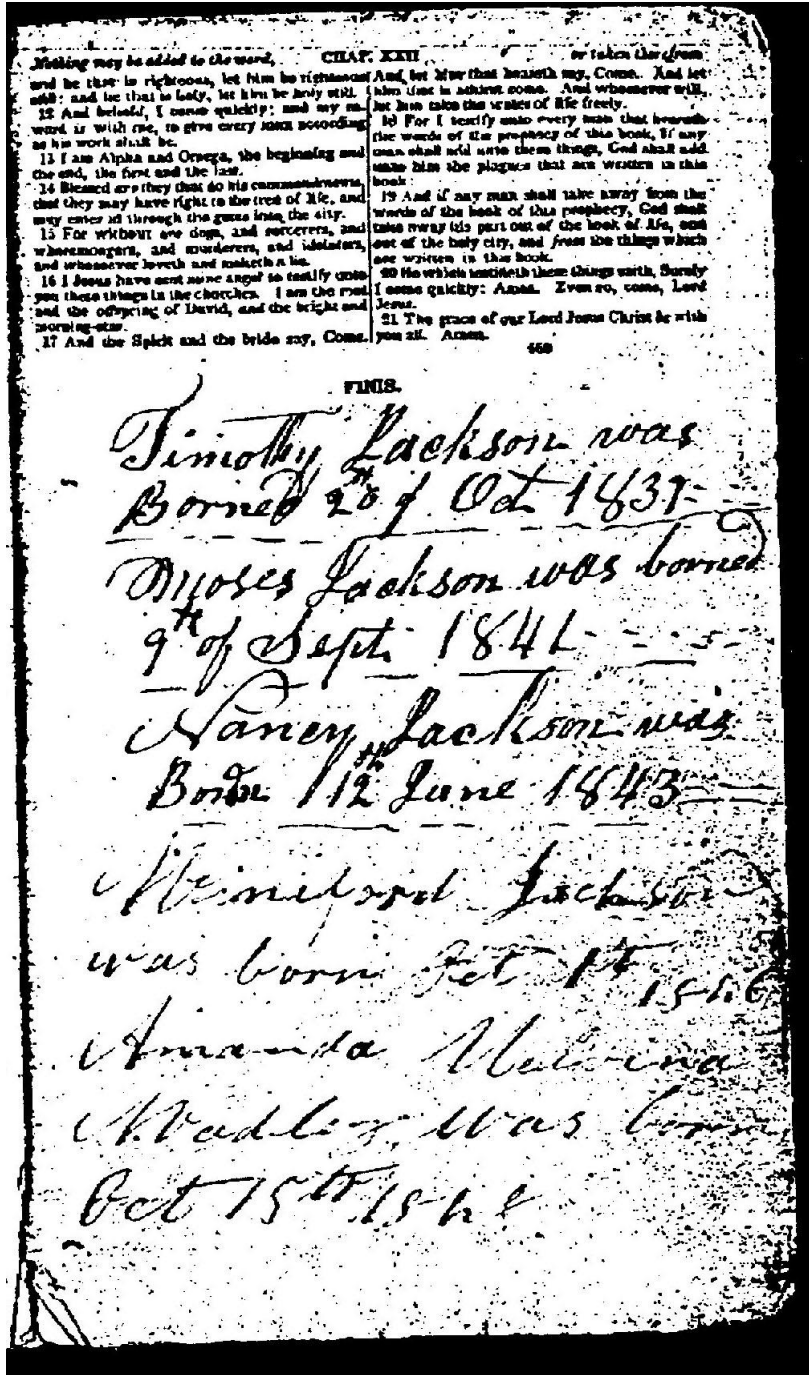 Nothing may be added to the word,
CHAP. XXII
or taken therefrom
and he that is righteous, let him be righteous
still: and he that is holy, let him be holy still.
12 And behold, I come quickly; and my re-
ward is with me, to give every man according
as his work shall be.
13 I am Alpha and Omega, the beginning and
the end, the first and the last.
14 Blessed are they that do his commandments,
that they may have right to the tree of life, and
may enter in through the gates into the city.
15 For without are dogs, and sorcerers, and
whoremongers, and murderers, and idolaters,
and whosoever loveth and maketh a lie.
16 I Jesus have sent mine angel to testify unto
you these things in the churches. I am the root
and the offspring of David, and the bright and
morning-star.
17 And the Spirit and the bride say, Come.
And let him that heareth say, Come. And let
him that is athirst come. And whosoever will,
let him take the water of life freely.
18 For I testify unto every man that heareth
the words of the prophecy of this book, If any
man shall add unto these things, God shall add
unto him the plagues that are written in this
book
19 And if any man shall take away from the
words of the book of this prophecy, God shall
take away his part out of the book of life, and
out of the holy city, and from the things which
are written in this book.
20 He which testifieth these things saith, Surely
I come quickly: Amen. Even so, come, Lord
Jesus.
21 The grace of our Lord Jesus Christ be with
you all. Amen.
FINIS.
Timothy Jackson was
Borned of Oct
Moses Jackson was borned
9th of Sept 1841
Nancy Jackson was
Born 12th June 1843
Jackson
was born 1st
Amanda
was born
Oct 15th